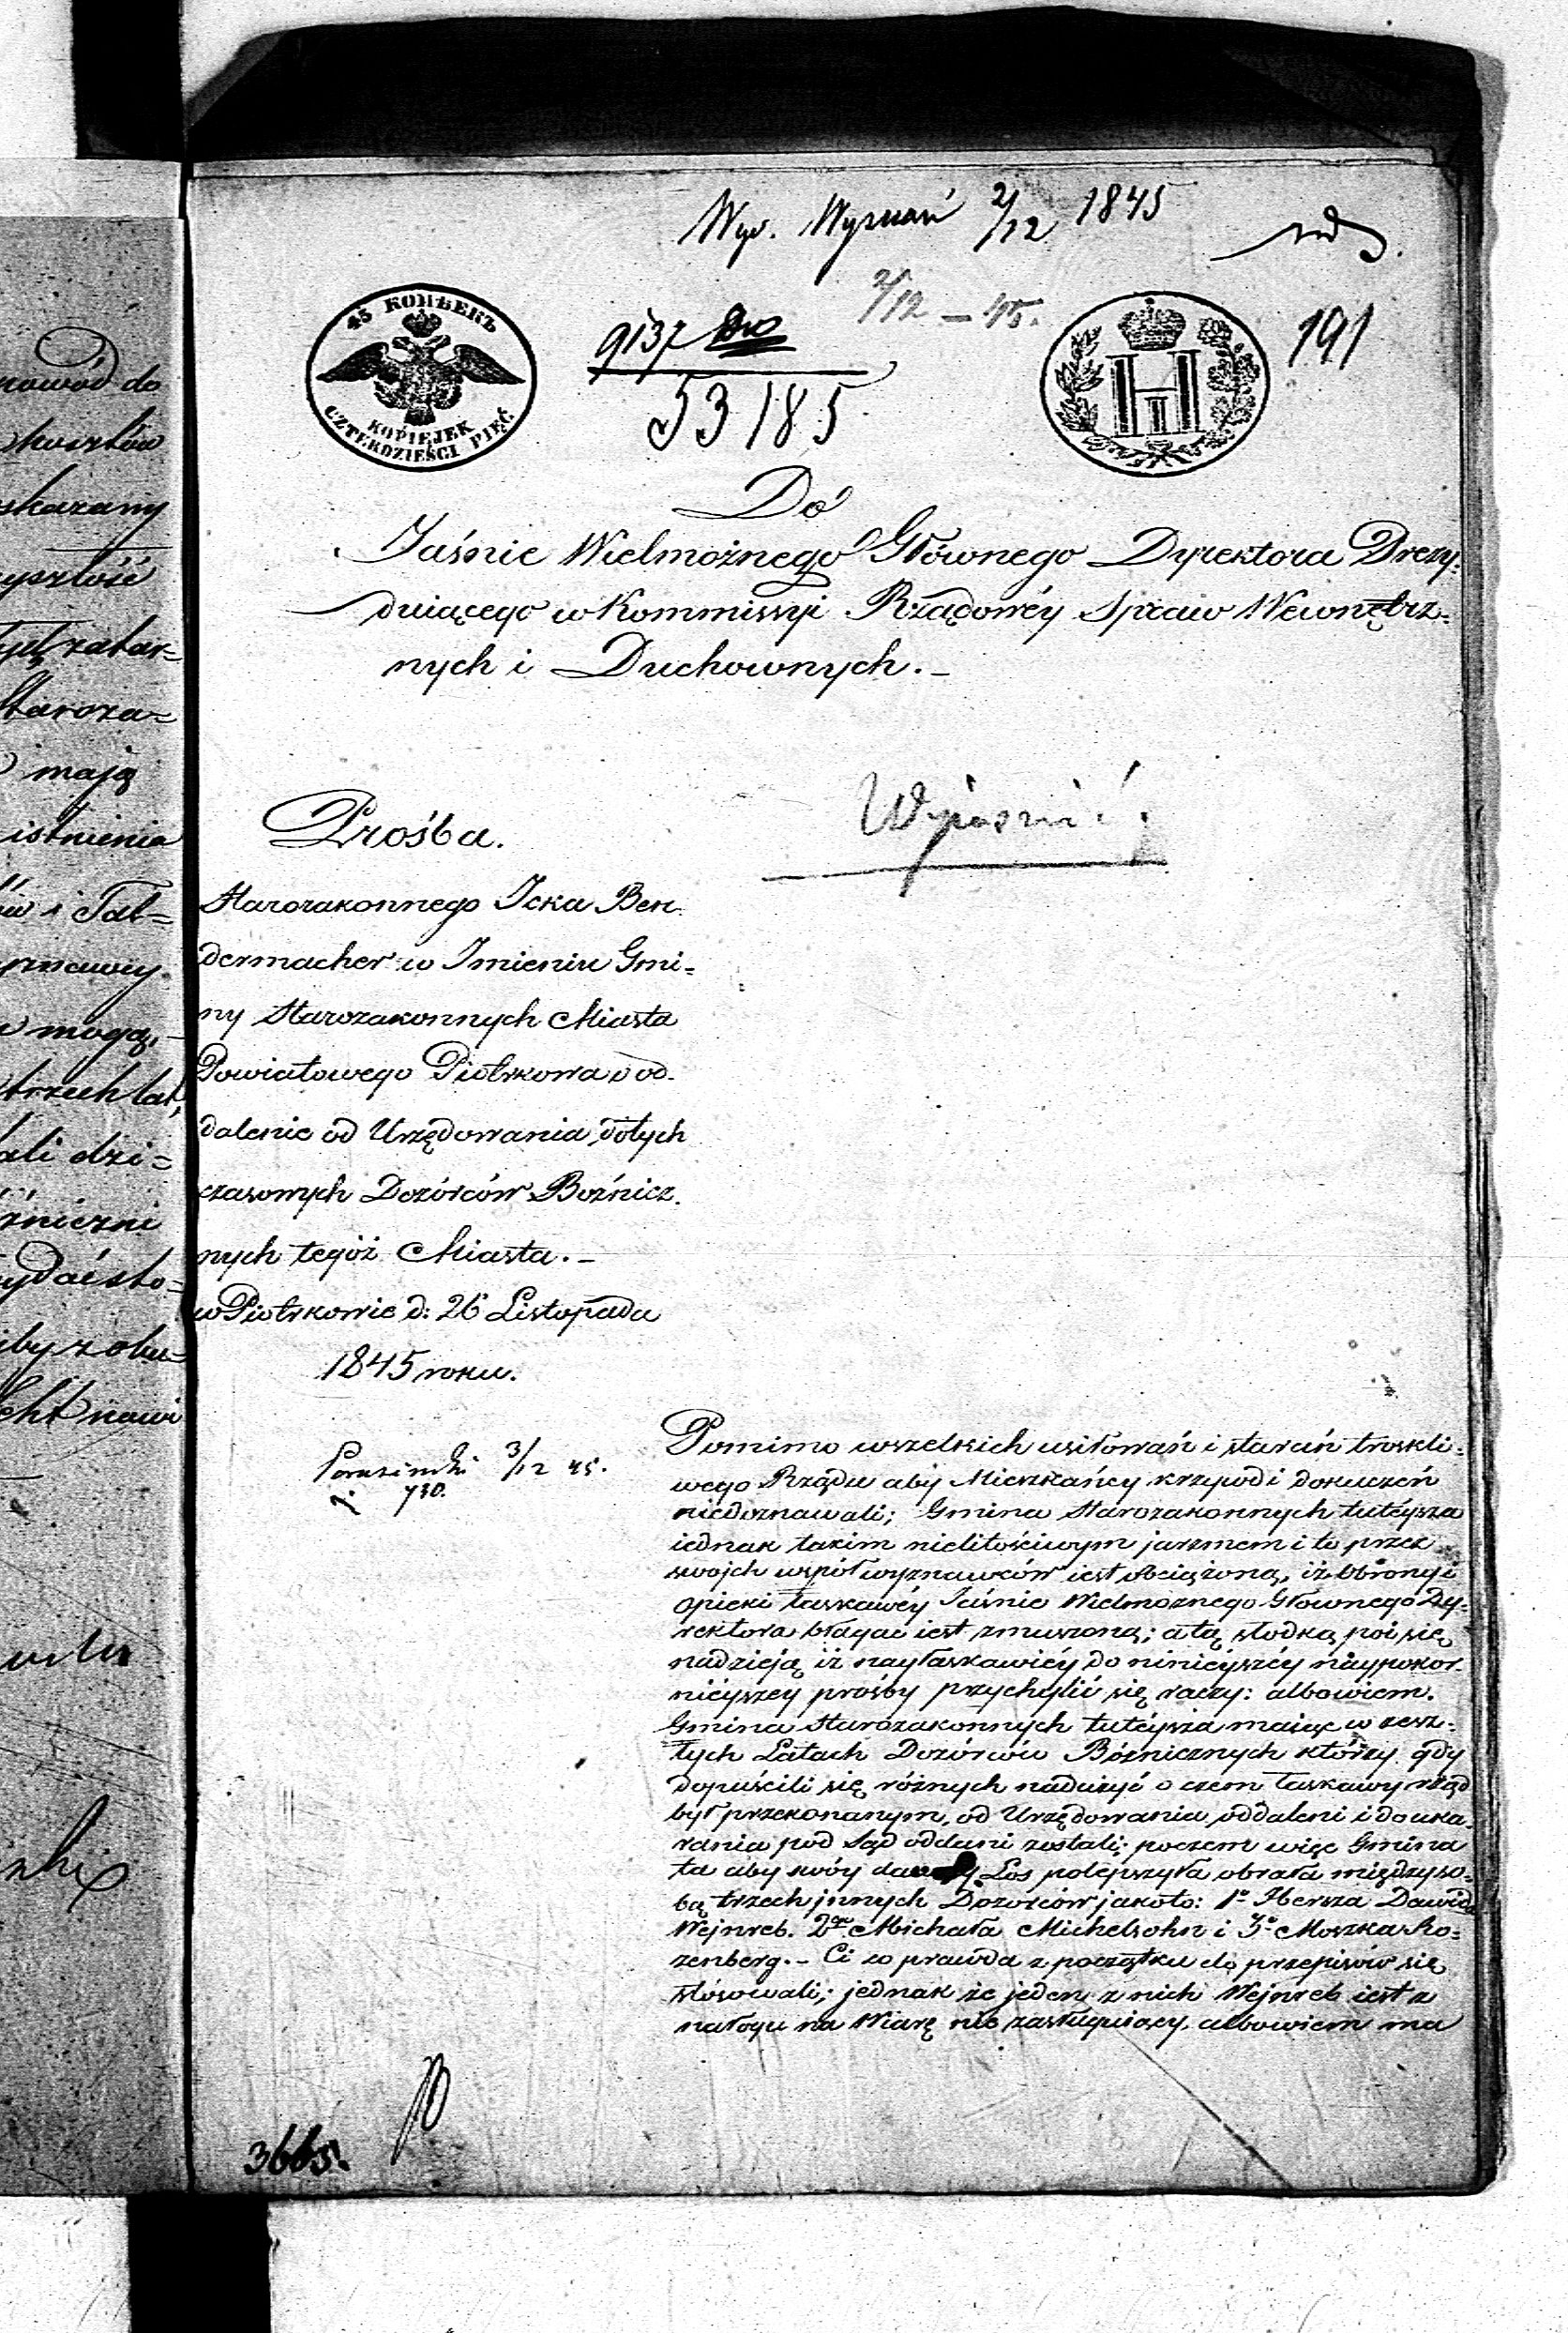 Wyd. Wyznań 2/12 1845
2/12 – 45.
45 КОПѢЕКЪ
KOPIEJEK
CZTERDZIEŚCI PIĘĆ
9137
53185
191
Do
Jaśnie Wielmożnego Głównego Dyrektora Prezy-
duiącego w Kommissyi Rządowéy Spraw Wewnętrz-
nych i Duchownych.–
Prośba.
Starozakonnego Icka Ben-
dermacher w Imieniu Gmi-
ny Starozakonnych Miasta
Powiatowego Piotrkowa o od-
dalenie od Urzędowania dotych
czasowych Dozórców Bożnicz-
nych tegóż Miasta.–
w Piotrkowie d: 26 Listopada
1845 roku.
3/12 45.
Pomimo wszelkich usiłowań i starań troskli-
wego Rządu aby Mieszkańcy krzywd i dokuczeń
niedoznawali; Gmina Starozakonnych tutéysza
iednak takim nielitościwym jarzmem i to przez
swojch współwyznawców iest obciążoną, iż obrony i
opieki łaskawéy Jaśnie Wielmoznego Głównego Dy-
rektora błagać iest zmuszoną; a tą słodką poi się
nadzieją iż nayłaskawiéy do ninieyszéy naypokor-
niéyszey prośby przychylić się raczy: albowiem.
Gmina Starozakonnych tutéysza maiąc w zesz-
łych Latach Dozórców Bóżnicznych którzy gdy
dopuścili się różnych nadużyć o czem łaskawy rząd
był przekonanym, od Urzędowania oddaleni i do uka-
rania pod Sąd oddani zostali; poczem więc Gmina
ta aby swóy Los polepszyła obrała między so-
bą trzech jnnych Dozorców jakoto: 1o Hersza Dawida
Wejnreb. 2o Michała Michelsohn i 3o Moszka Ro-
zenberg.– Ci co prawda z początku do przepisów się
stósowali; jednak że jeden z nich Wejnreb iest z
nałogu na Wiarę nie zasługuiący, albowiem ma
3665.
nowód do
kosztów
skazany
yszłość
zatar-
Staroza-
mają
istnienia
i Tal-
mogą,
trzech lat,
ali dzi-
źniczni
ydać sto-
iby z obu-